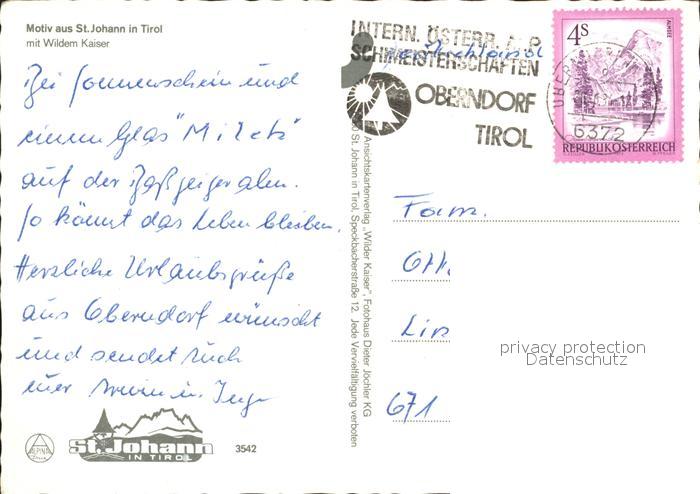 Motiv aus St. Johann in Tirol
mit Wildem Kaiser
Bei Sonnenschein und
einem Glas "Milch"
auf der Baßgeigeralm.
So könnt das Leben bleiben.
Herzliche Urlaubsgrüße
aus Oberndorf wünscht
und sendet Euch
euer
St. Johann
IN TIROL
3542
ALPINA
Ansichtskartenverlag „Wilder Kaiser", Fotohaus Dieter Jöchler KG
St. Johann in Tirol, Speckbacherstraße 12. Jede Vervielfältigung verboten
INTERN. ÖSTERR.
SCHIMEISTERSCHAFTEN
OBERNDORF
TIROL
6372
4S
ALMSEE
REPUBLIK ÖSTERREICH
Fam.
Ott.
Lin
671
privacy protection
Datenschutz